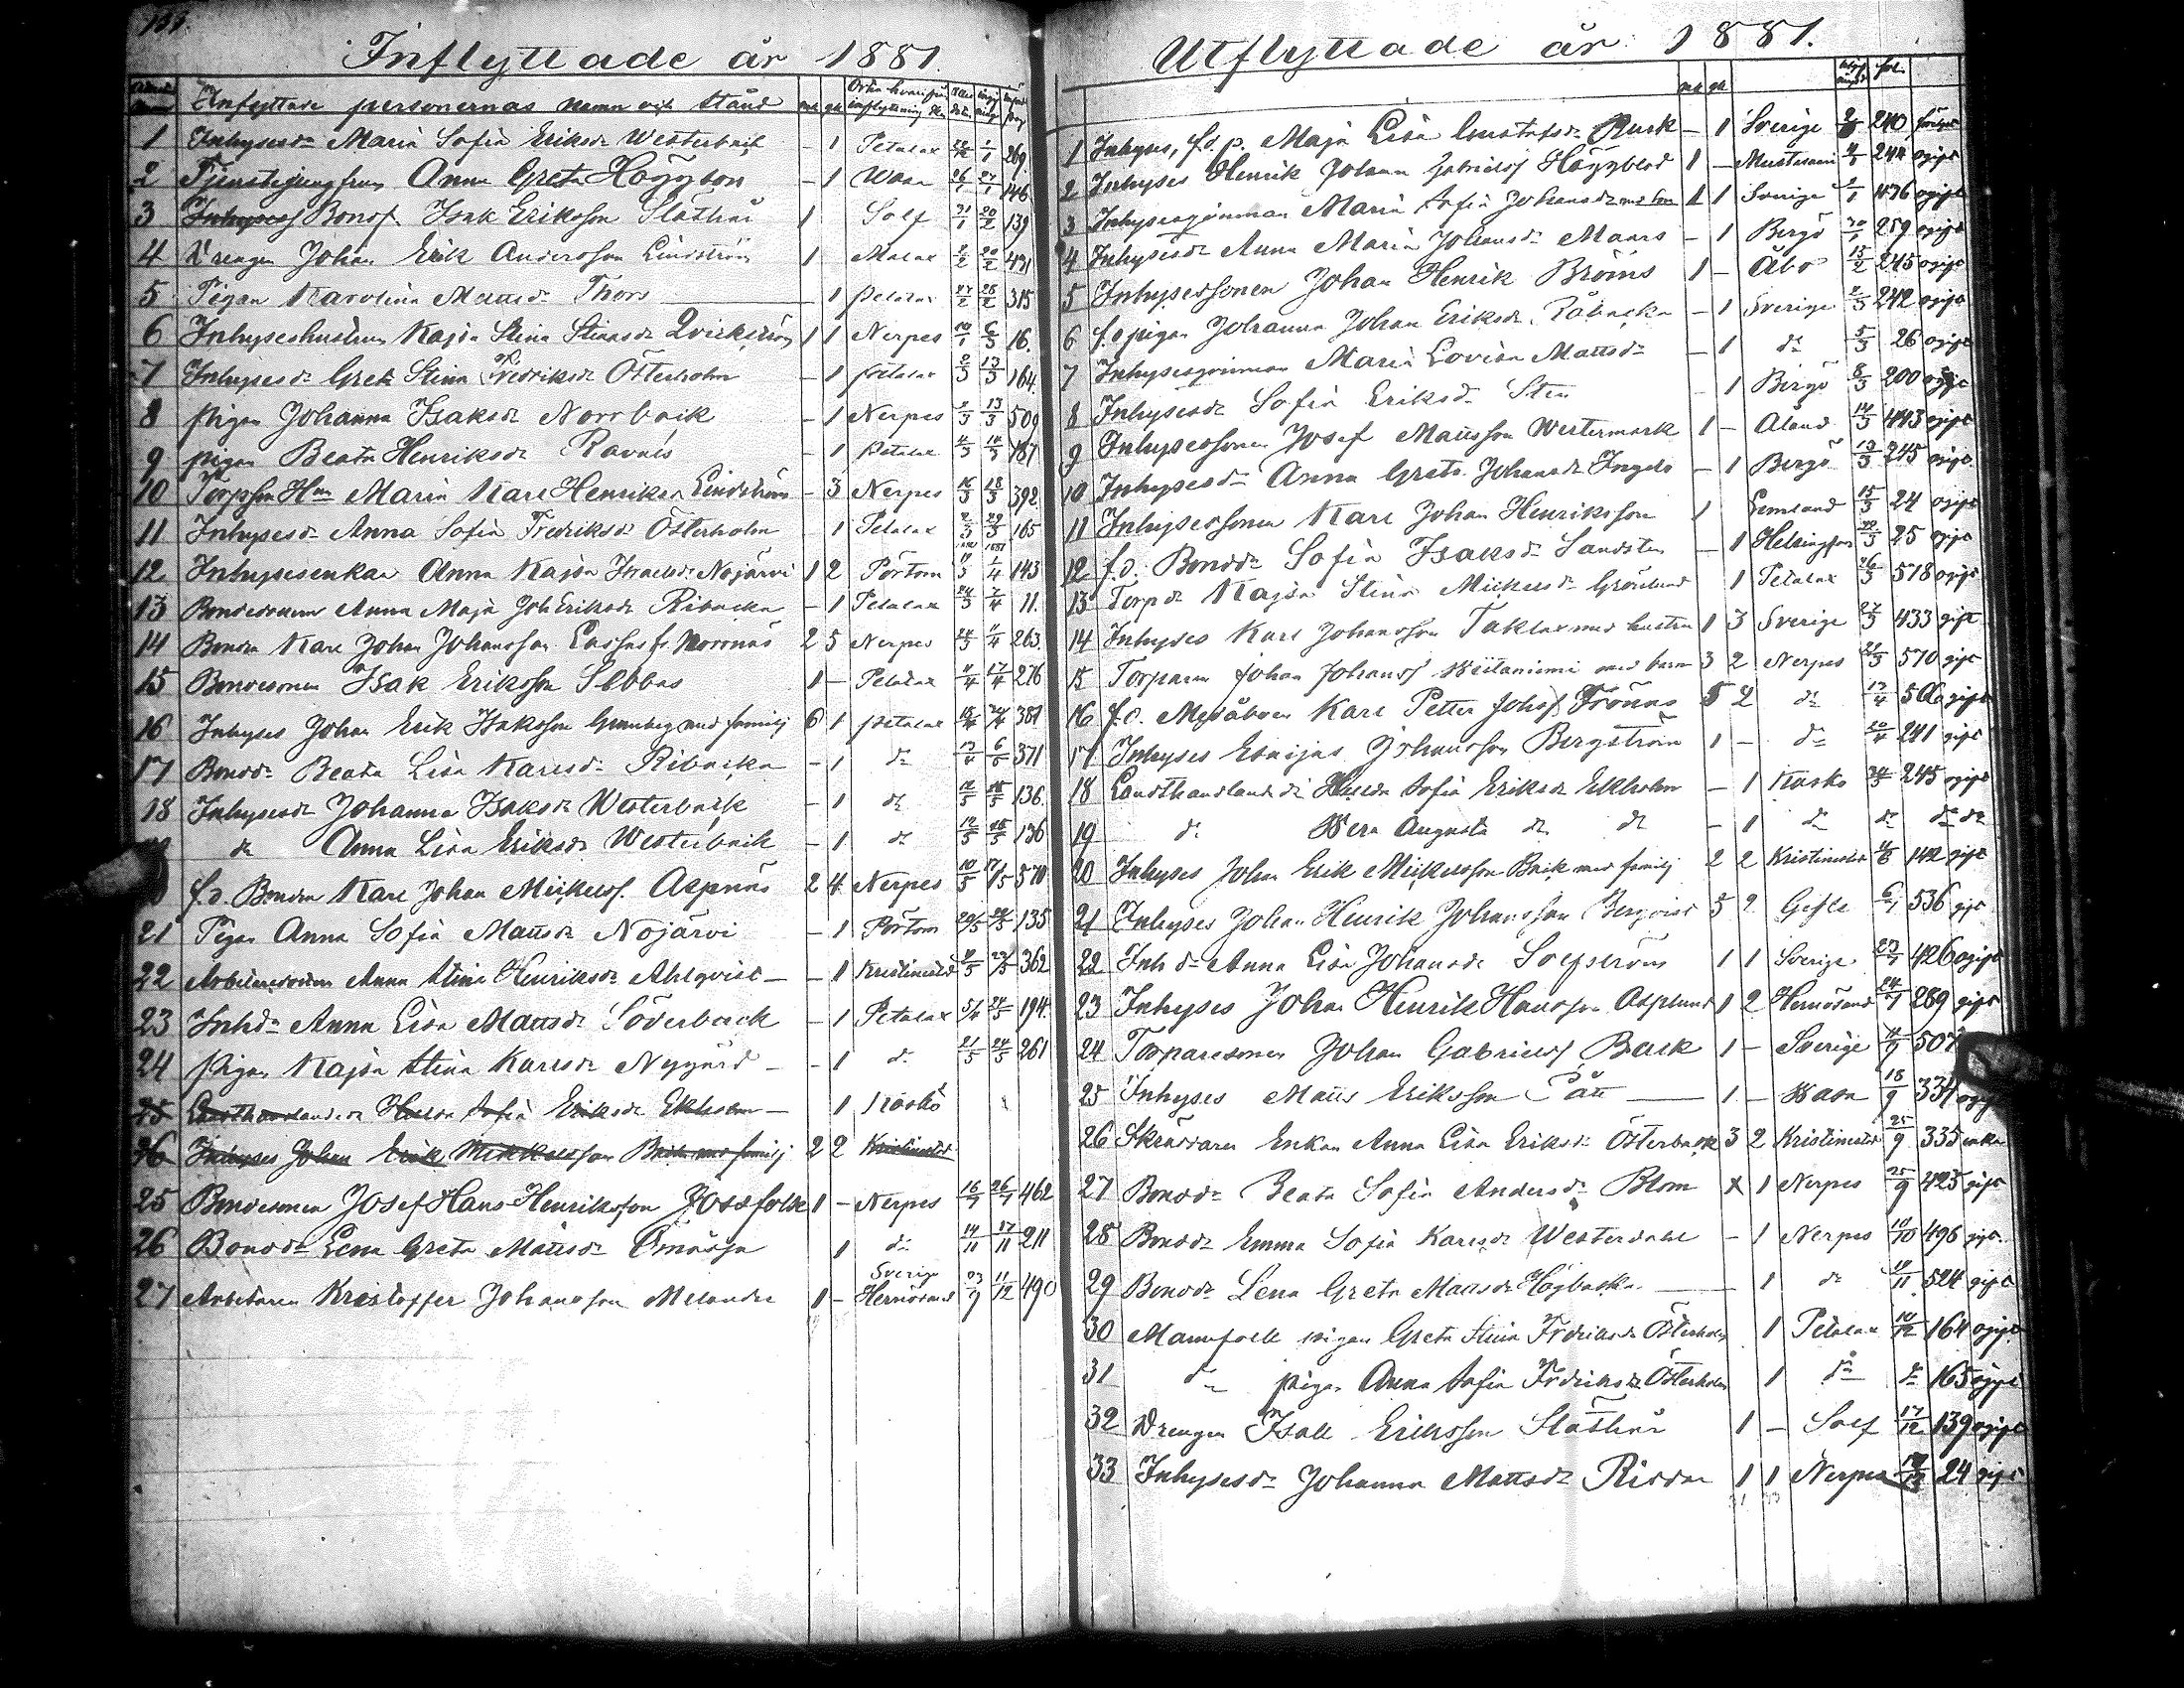 Inflyttade år 1881.
Inflyttade personernas namn och stånd mk qk Orten hvarifrån inflyttning sker
1 Inhysesdr Maria Sofia Eriksdr Westerback – 1 Petalax 1/1 269
2 Tjenstejungfrun Anna Greta Häggblom – 1 Wasa 26/1 27/1 146
3 Inhyses Bondes. Isak Eriksson Slåthår 1 Solf 31/1 20/2 139
4 Drengen Johan Erik Andersson Lindström 1 Malax 2/2 20/2 431
5 Pigan Karolina Mattsdr Thors 1 Petalax 27/2 28/2 315
6 Inhyseshustrun Kajsa Stina Qvickström 1 1 Nerpes 10/1 6/3 16.
7 Inhysesdr Greta Stina Fredriksdr Österholm – 1 Petalax 2/3 13/3 164.
8 pigan Johanna Isaksdr Norrback – 1 Nerpes 2/3 13/3 509
9 pigan Beata Henriksdr Ravnäs – 1 Petalax 187
10 Maria Karl Henriksdr Lindström – 3 Nerpes 16/3 18/3 392.
11 Inhysesdr Anna Sofia Fredriksdr Österholm 1 Petalax 165
12 Inhysesenkan Anna Kajsa Israelsdr Nojärvi 1 2 Pörtom 1/4 143
13 Anna Maja Joh Eriksdr Ribacka – 1 Petalax 24/3 2/4 11.
14 Bonden Karl Johan Johansson Lassfs fr. Norrnäs 2 5 Nerpes 263.
15 Bondesonen Isak Eriksson Sebbas 1 – Petalax 4/4 17/4 276
16 Inhyses Johan Erik Isaksson Grunberg med familj 6 1 petalax 381
17 Bondedr Beata Lisa Karlsdr Ribacka – 1 dr 371
18 Inhysesdr Johanna Isaksdr Westerback – 1 dr 12/5 15/5 136.
dr Anna Lisa Eriksdr Westerback – 1 dr 12/5 15/5 136
f.d. Bonden Karl Johan Mickelss. Aspnäs 2 4 Nerpes 10/5 17/5 570
21 Pigan Anna Sofia Mattsdr Nojärvi – 1 Pörtom 135
22 Anna Stina Henriksdr Ahlqvist – – 1 Kristinestd 362
23 Inhdr Anna Lisa Mattsdr Söderback – 1 Petalax 24/5 194.
24 pigan Kajsa Stina Karlsdr Nygård – – 1 dr 21/5 24/5 261
25 Landthandlandedr Hulda Sofia Eriksdr Ekholm – 1 Kaskö
26 Inhyses Johan Erik Mickelsson Back med familj 2 2 Kristinestd
25 Bondesonen Josef Hans Henriksson Jossfolk 1 – Nerpes 16/7 26/7 462
26 Bondedr Lena Greta Mattsdr Ömossa 1 dr 14/11 17/11 211
27 Arbetaren Kristoffer Johansson Melander 1 – Sverige Hernösand 23/9 11/12 490
Utflyttade år 1881.
mk qk fol.
1 Inhyses, f.d. p. Maja Lisa Gustafsdr Rusk – 1 Sverige 240
2 Inhyses Henrik Johan Gabrielss Häggblad 1 – Mustasaari 244 ogift
3 Inhysesqvinnan Maria Sofia Johansdr med son 1 1 Sverige 476 ogift
4 Inhysesdr Anna Maria Johansdr Maars – 1 Bergö 30/1 259 ogift
5 Inhysessonen Johan Henrik Bröms 1 – Åbo 15/2 245 ogift
6 f.d pigan Johanna Johan Eriksdr Råbacka – 1 Sverige 242 ogift
7 Inhysesqvinnan Maria Lovisa Mattsdr – 1 dr 5/3 26 ogift
8 Inhysesdr Sofia Eriksdr Sten 1 Bergö 8/3 200 ogift
9 Inhysessonen Josef Mattsson Westermark 1 – Åland 14/3 443 ogift
10 Inhysesdr Anna Greta Johansdr Ingels – 1 Bergö 13/3 245 ogift
11 Inhysessonen Karl Johan Henriksson 1 Lemland 15/3 24 ogift
12 f.d. Bondedr Sofia Isaksdr Sandsten – 1 Helsingfors 25 ogift
13 Torpdr Kajsa Stina Mickelsdr Grönlund 1 Petalax 26/3 518 ogift
14 Inhyses Karl Johansson Taklax med hustru 1 3 Sverige 27/3 433 gift
15 Torparen Johan Johanss Wiitaniemi med barn 3 2 Nerpes 570 gift
16 f.d. Karl Petter Johss Frönäs 5 2 dr 506 gift
17 Inhyses Esaijas Johansson Bergström 1 – dr 241 gift
18 Landthandlandedr Hulda Sofia Eriksdr Ekholm – 1 Kaskö 245 ogift
19 dr Wera Augusta dr dr – 1 dr dr dr dr
20 Inhyses Johan Erik Mickelsson Back med familj 2 2 Kristinestd 142 gift
21 Inhyses Johan Henrik Johansson Bergqvist 5 2 Gefle 6/7 536 gift
22 Inhdr Anna Lisa Johansdr Solfström 1 1 Sverige 23/7 426 ogift
23 Inhyses Johan Henrik Hansson Asplund 1 2 Hernösand 24/7 269 gift
24 Torparesonen Johan Gabrielss Back 1 – Sverige 507
25 Inhyses Matts Eriksson Pått 1 – Wasa 18/9 334 ogift
26 Skräddare Enkan Anna Lisa Eriksdr Österback 3 2 Kristinestd 25/9 335 enka
27 Bondedr Beata Sofia Andersdr Blom x 1 Nerpes 25/9 425 gift
28 Bondedr Emma Sofia Karlsdr Westerdahl – 1 Nerpes 10/10 496 gift.
29 Bondedr Lena Greta Mattsdr Högbacka 1 dr 524 gift
30 pigan Greta Stina Frdriksdr Österholm 1 Petalax 10/12 164 ogift
31 dr pigan Anna Sofia Frdriksdr Österholm 1 dr dr 165 ogift
32 Drengen Isak Eriksson Slåthår 1 – Solf 17/12 139 ogift
33 Inhysesdr Johanna Mattsdr Riddar 1 1 Nerpes 24 gift